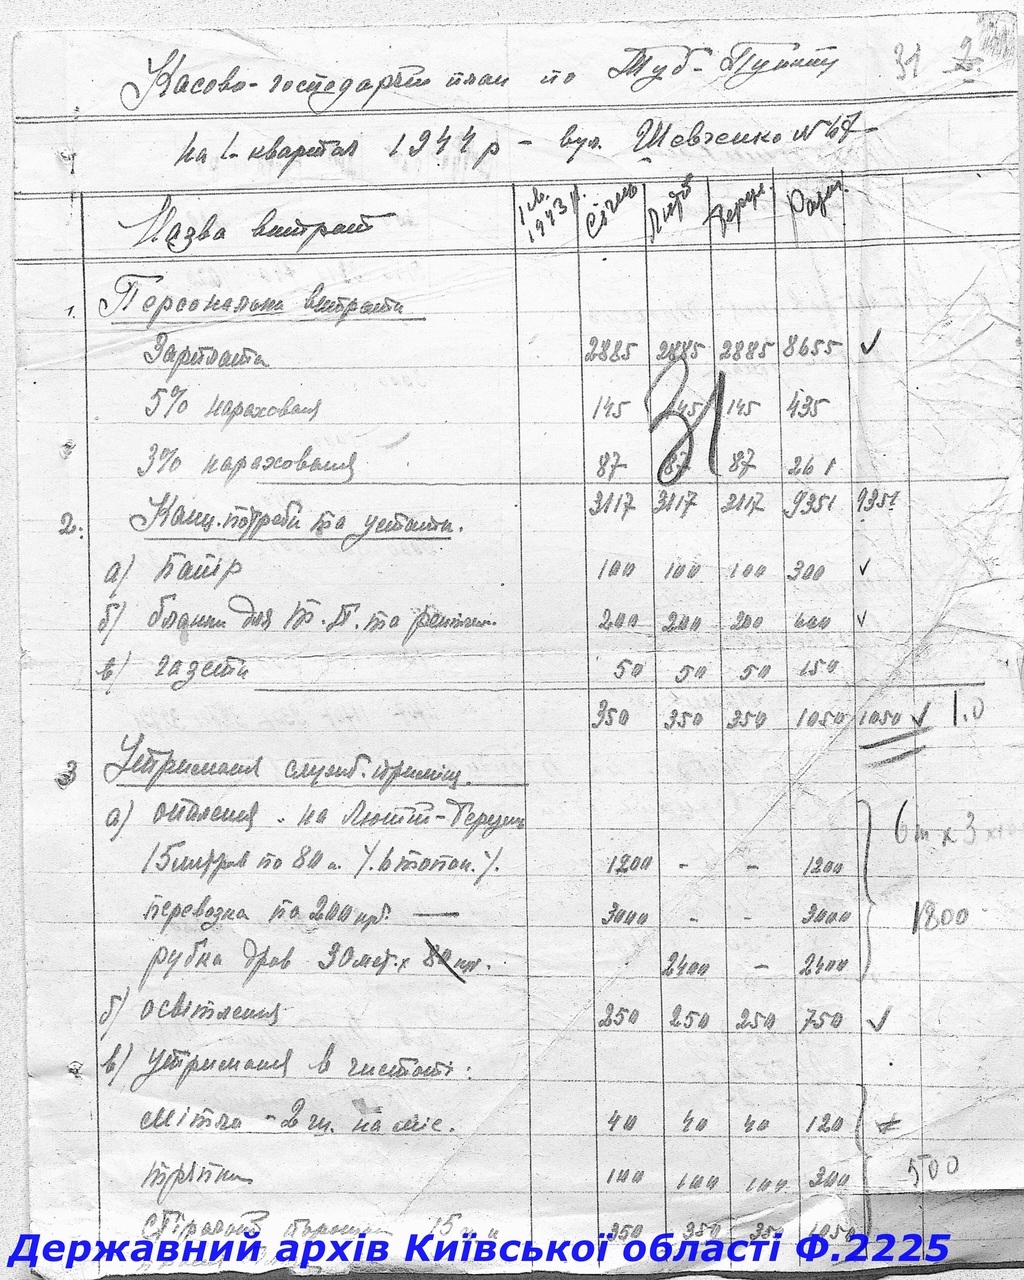 Касово-господарчий план по Туб-Пункту 31 2.
на I-квартал 1944 р - вул. Шевченко № 47
Назва витрат 1 кв. 1943 р. Січень Лютий Берез. Разом.
1. Персональна витрата
Зарплата 2885 2885 2885 8655 ✓
5% нараховання 145 145 145 435
31
3% нараховання 87 87 87 261
3117 3117 3117 9351 9351
2. Канц. потреби та устатк.
а) Папір 100 100 100 300 ✓
б) бланки для Т.П. та 200 200 200 600 ✓
в) газети 50 50 50 150
350 350 350 1050 1050 ✓ 1.0
3 Утримання служб. приміщ.
а) опалення - на Лютий-Березень
15 метрів по 80 1200 - - 1200
6т х 3 х
перевозка по 200 крб. — 3000 - - 3000 1800
рубка дров 30 мет. х 80 крб. 2400 - 2400
б) освітлення 250 250 250 750 ✓
в) утримання в чистоті:
мітла - 2 шт. на міс. 40 40 40 120
тряпки 100 100 100 300 500
350 350 350 1050
Державний архів Київської області Ф.2225